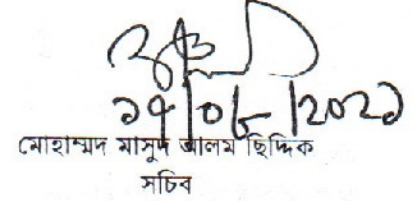 ১৭/০৮/২০২১
মোহাম্মদ মাসুদ আলম ছিদ্দিক
সচিব